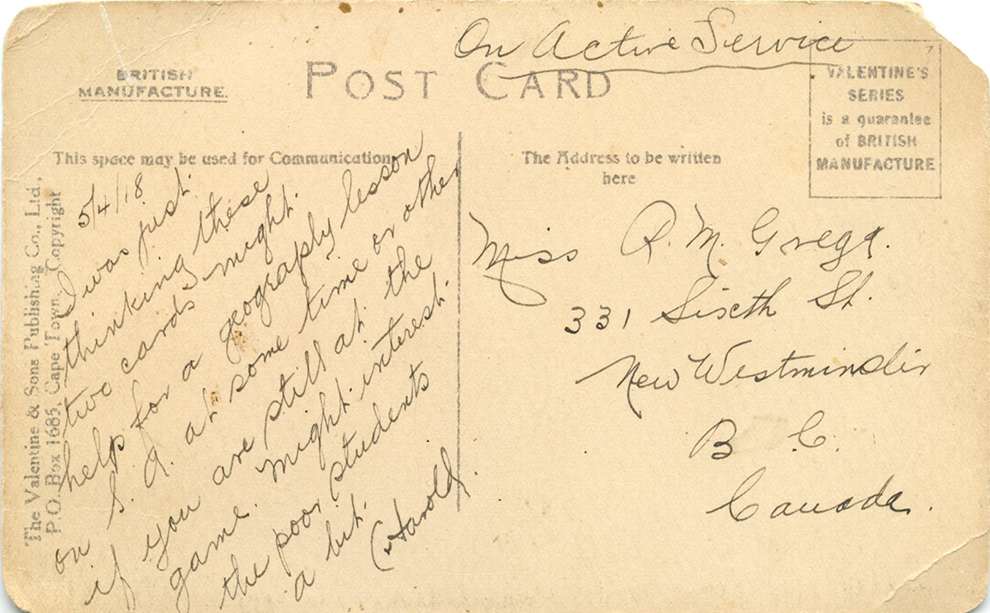 On Active Service
BRITISH
MANUFACTURE.
POST CARD
VALENTINE'S
SERIES
is a guarantee
of BRITISH
MANUFACTURE
This space may be used for Communication
The Address to be written
here
The Valentine & Sons Publishing Co., Ltd.,
P.O. Box 1685, Cape Town. Copyright
5/4/18
I was just
thinking these
two cards might
help for a geography lesson
on S. A. at some time or other
if you are still at the
game. might interest
the poor students
a bit.
(Harold)
Miss R. M. Gregg.
331 Sixth St.
New Westminster
B C.
Canada.